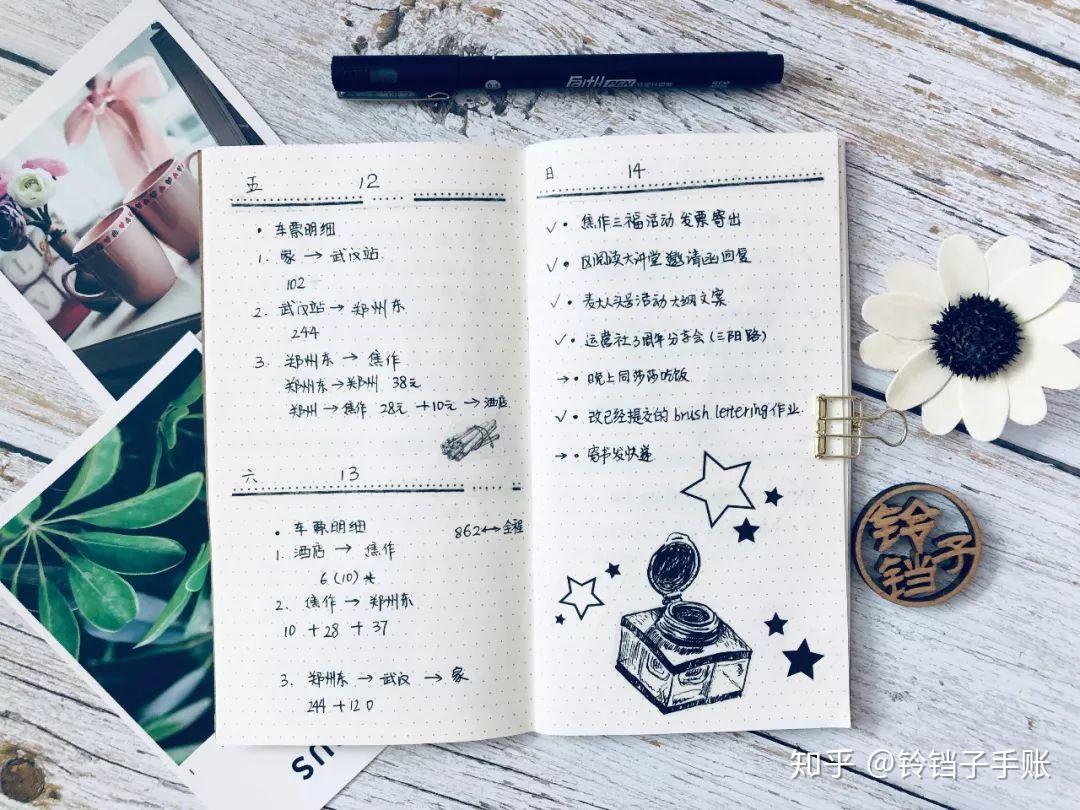 Faith PEN
五 12
• 车票明细
1. 家 → 武汉站
102
2. 武汉站 → 郑州东
244
3. 郑州东 → 焦作
郑州东→郑州 38元
郑州→焦作 28元 +10元 →酒店.
六 13
• 车票明细 862↔全程
1. 酒店 → 焦作
6 (10)
2. 焦作 → 郑州东
10 +28 +37
3. 郑州东 → 武汉 → 家
244 +120
日 14
✓ • 焦作三福活动 发票寄出
✓ • 阅读大讲堂邀请函回复
✓ • 麦大人头号活动大纲文案
✓ • 运营社3周年分享会(三阳路)
→ • 晚上同莎莎吃饭
✓ • 改已经提交的 brush lettering 作业.
→ • 寄书发快递
铃铛子
US
知乎 @铃铛子手账